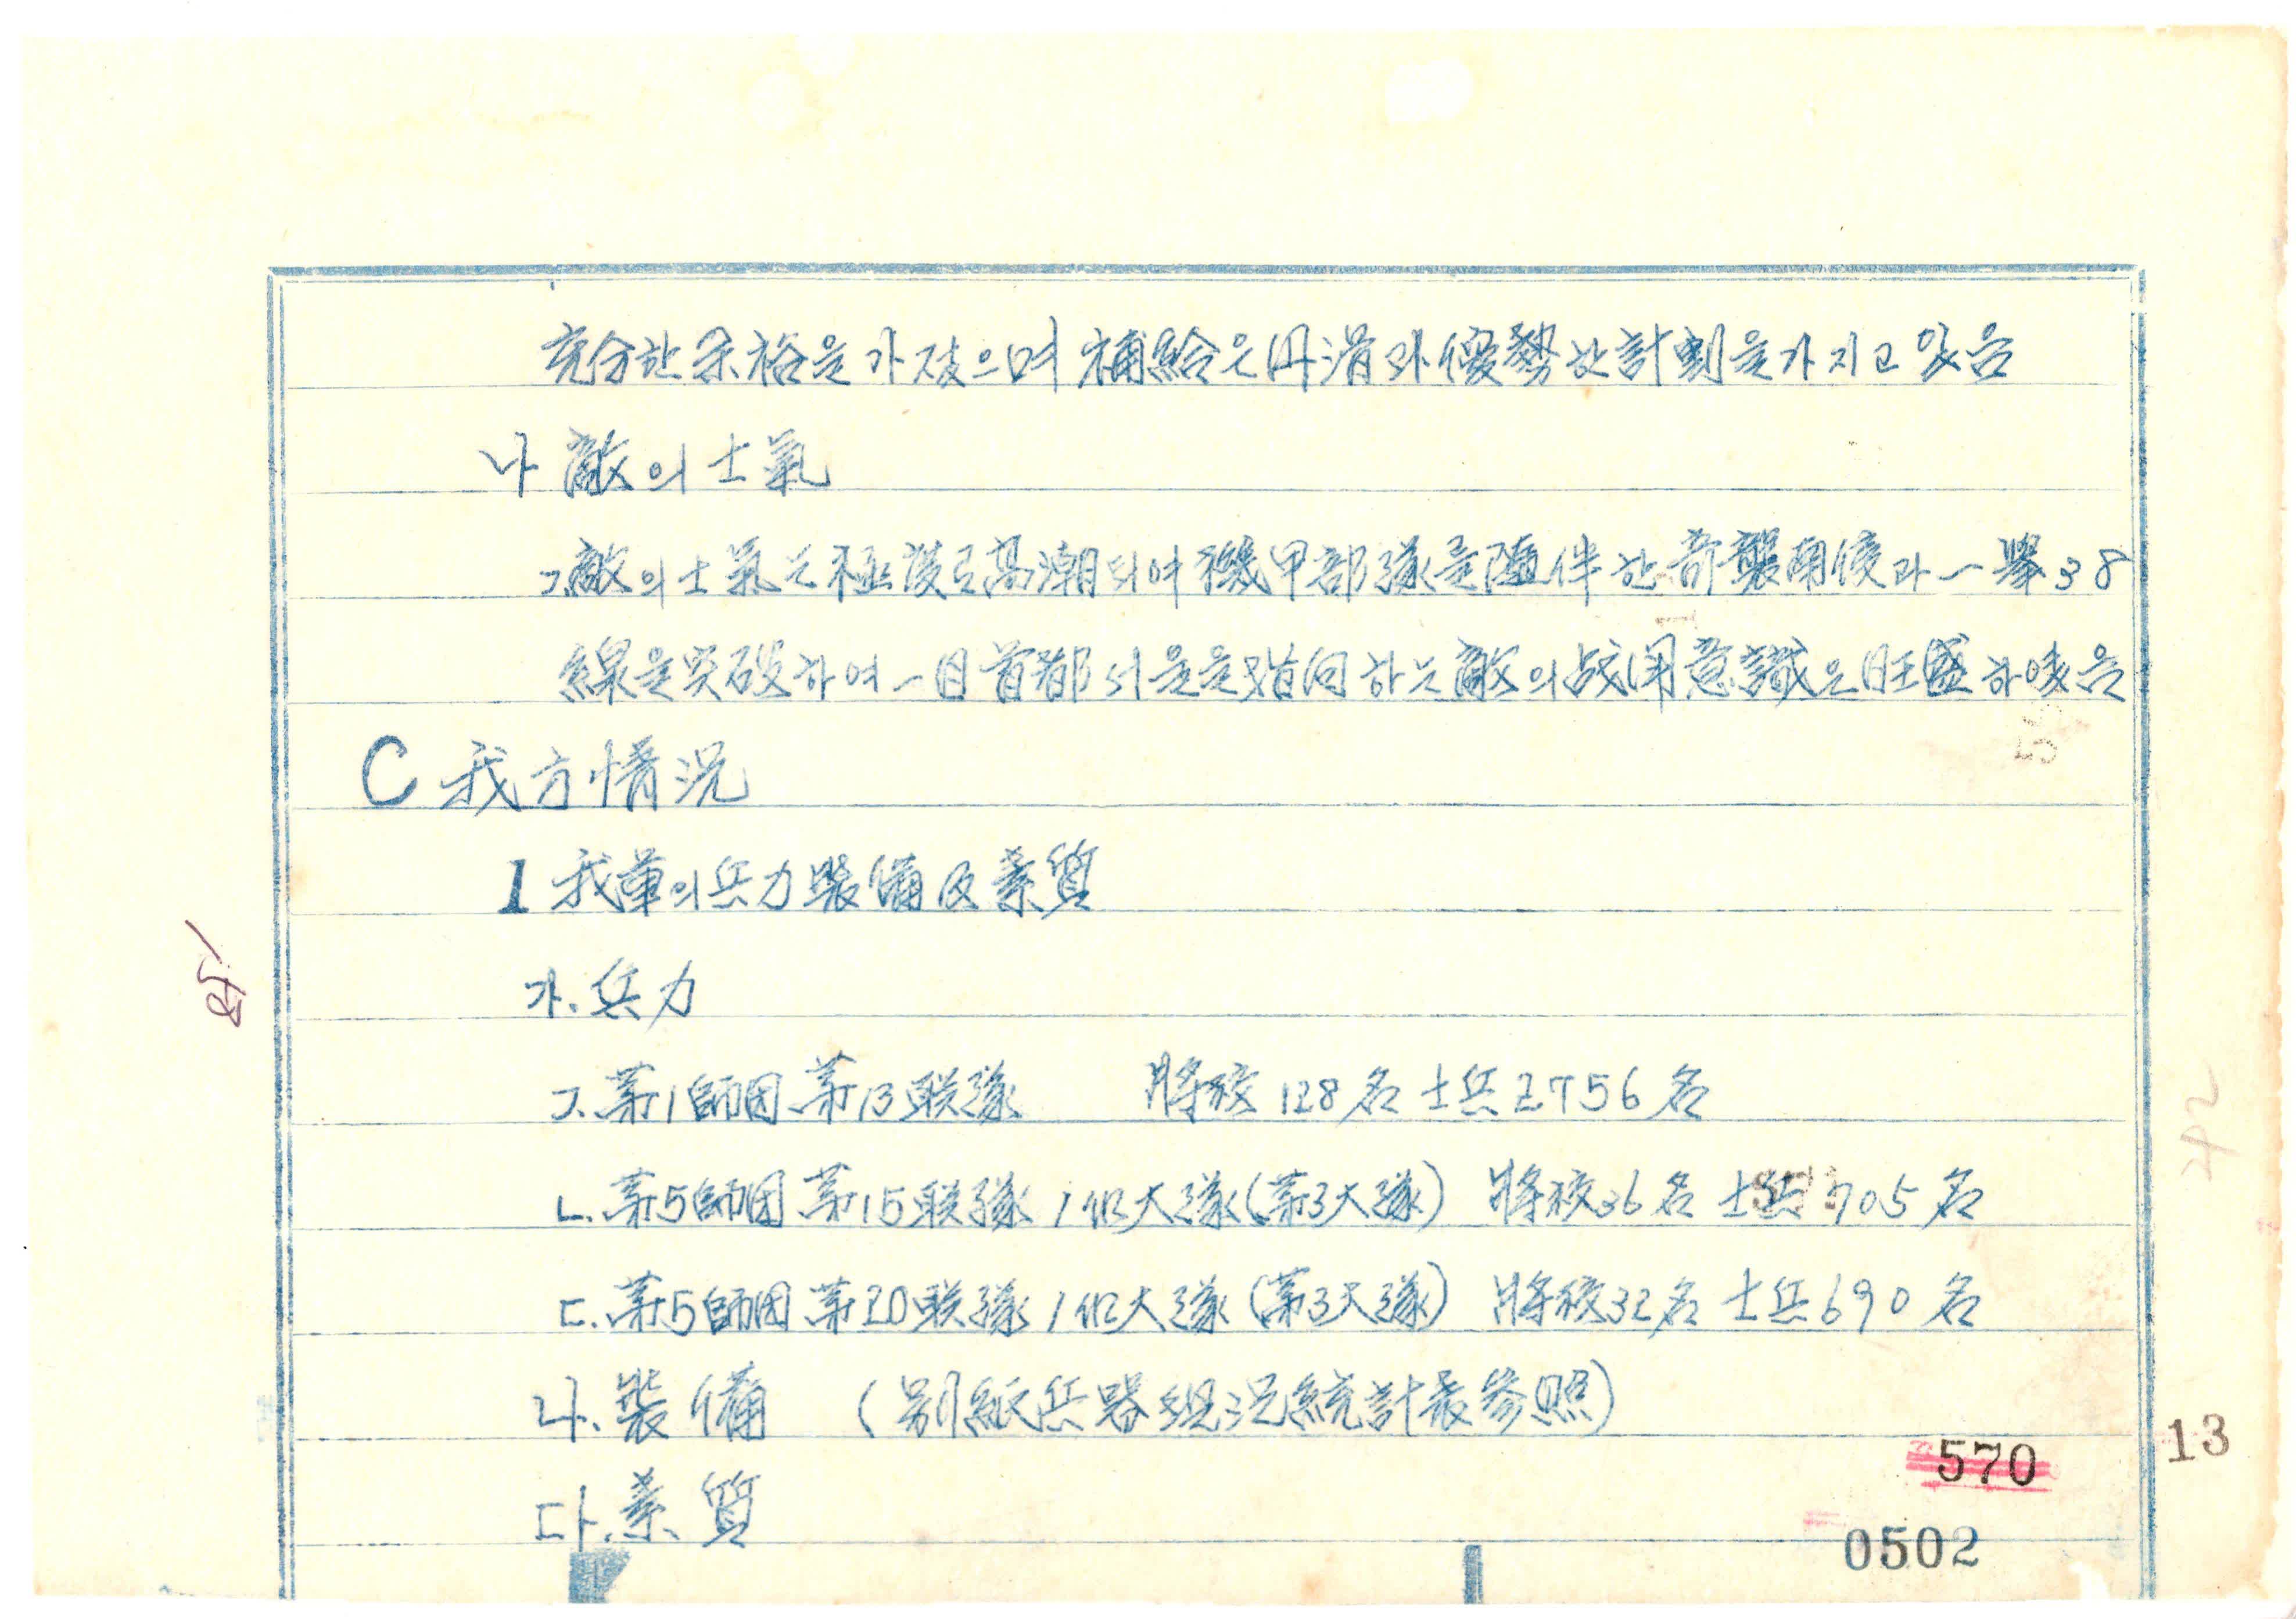 充分한 余裕을 가젔으며 補給은 円滑과 優勢한 計劃을 가지고 있음
나 敵의 士氣
ㄱ.敵의 士氣는 極度로 高潮되여 機甲部隊을 隨伴한 奇襲用俊과 一擧 38
線을 突破하여 一日 首都 서울을 指向하는 敵의 战闘意識은 旺盛하였음
C 我方情況
1 我軍의 兵力 裝備 及 素質
가. 兵力
ㄱ. 苐1師団 苐13联隊 將校 128名 士兵 2756名
ㄴ. 苐5師団 苐15联隊 1個大隊(苐3大隊) 將校 36名 士兵 705名
ㄷ. 苐5師団 苐20联隊 1個大隊(苐3大隊) 將校 32名 士兵 690名
나. 裝備 (別紙兵器現況統計表參照)
다. 素質
570
13
0502
42